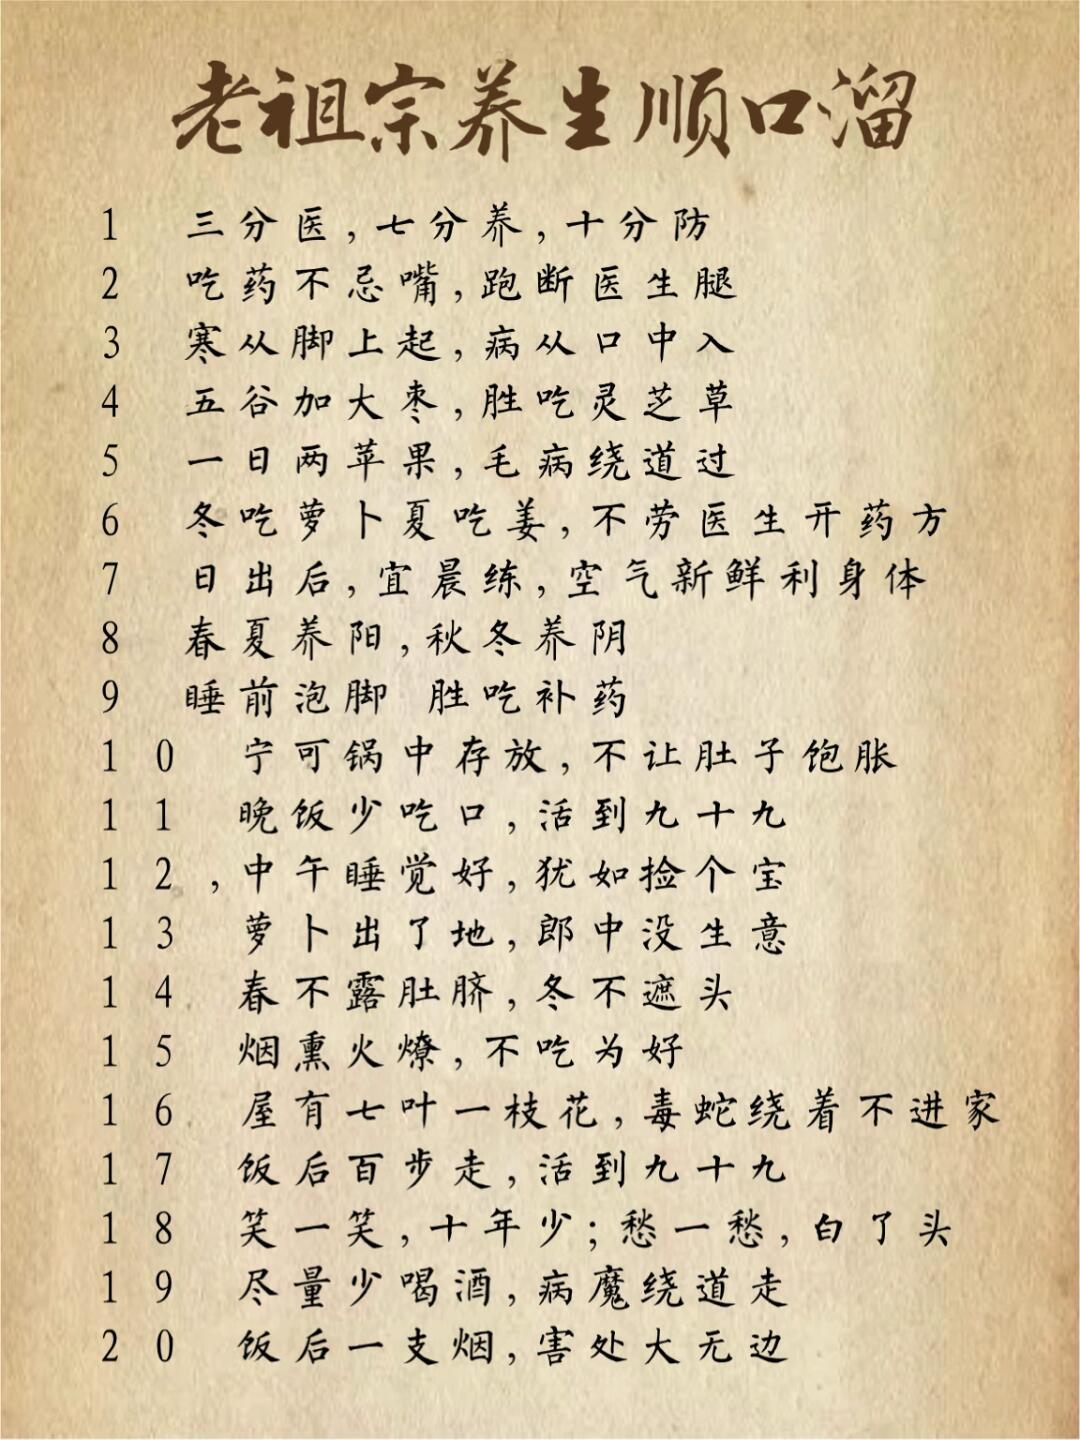 老祖宗养生顺口溜
1 三分医,七分养,十分防
2 吃药不忌嘴,跑断医生腿
3 寒从脚上起,病从口中入
4 五谷加大枣,胜吃灵芝草
5 一日两苹果,毛病绕道过
6 冬吃萝卜夏吃姜,不劳医生开药方
7 日出后,宜晨练,空气新鲜利身体
8 春夏养阳,秋冬养阴
9 睡前泡脚 胜吃补药
10 宁可锅中存放,不让肚子饱胀
11 晚饭少吃口,活到九十九
12,中午睡觉好,犹如捡个宝
13 萝卜出了地,郎中没生意
14 春不露肚脐,冬不遮头
15 烟熏火燎,不吃为好
16 屋有七叶一枝花,毒蛇绕着不进家
17 饭后百步走,活到九十九
18 笑一笑,十年少;愁一愁,白了头
19 尽量少喝酒,病魔绕道走
20 饭后一支烟,害处大无边